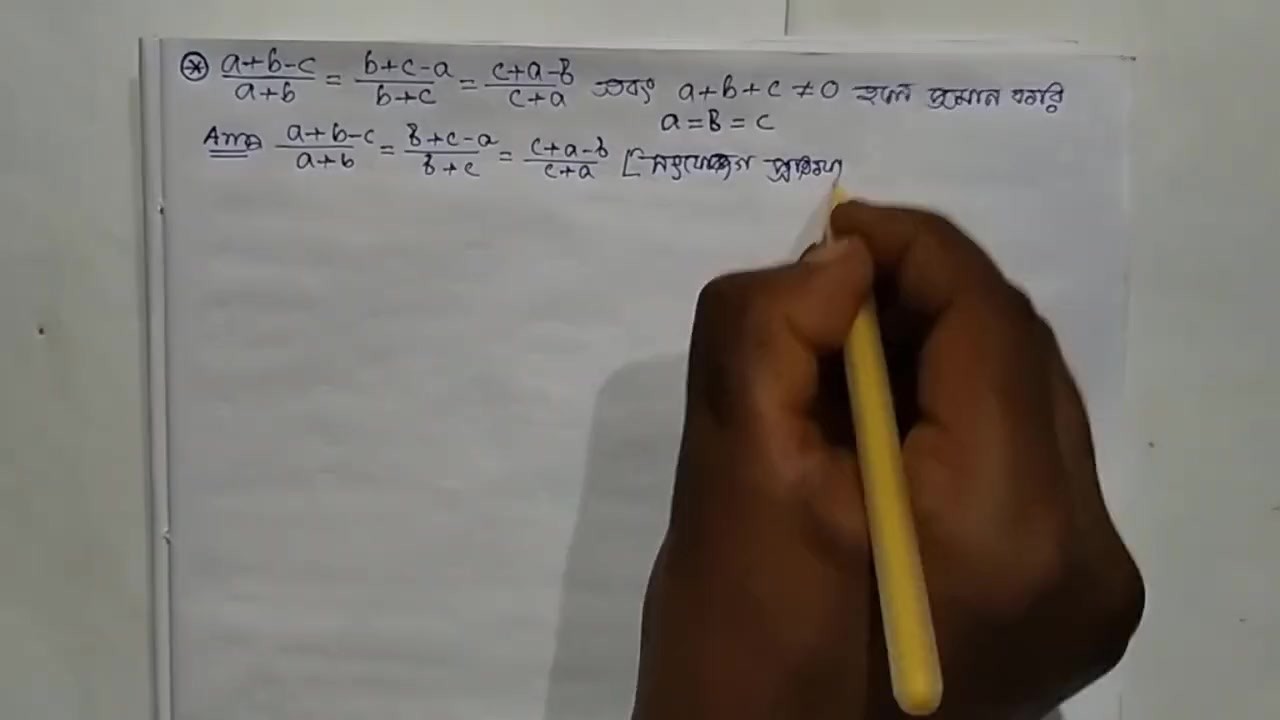 ⊛ (a+b-c)/(a+b) = (b+c-a)/(b+c) = (c+a-b)/(c+a) এবং a+b+c ≠ 0 হলে প্রমাণ করি
a = b = c
Ans (a+b-c)/(a+b) = (b+c-a)/(b+c) = (c+a-b)/(c+a) [সংযোজন প্রক্রিয়া